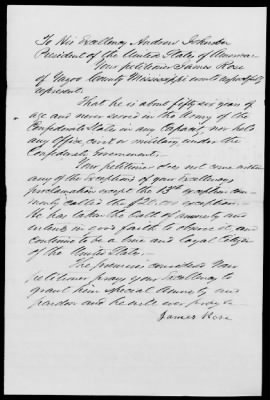 To His Excellency Andrew Johnson
President of the United States of America
Your petitioner James Rose
of Yazoo County Mississippi would respectfully
represent.
That he is about fifty six years of
age and never served in the Army of the
Confederate States in any Capacity, nor held
any Office, civil or military, under the
Confederate Government.
Your petitioner does not come within
any of the Exceptions of your Excellency's
proclamation except the 13th exception com-
monly called the $20,000 exception.
He has taken the Oath of Amnesty and
intends in good faith to observe it, and
continue to be a true and loyal Citizen
of the United States.
The premises considered Your
petitioner prays your Excellency to
grant him special Amnesty and
pardon and he will ever pray &c
James Rose